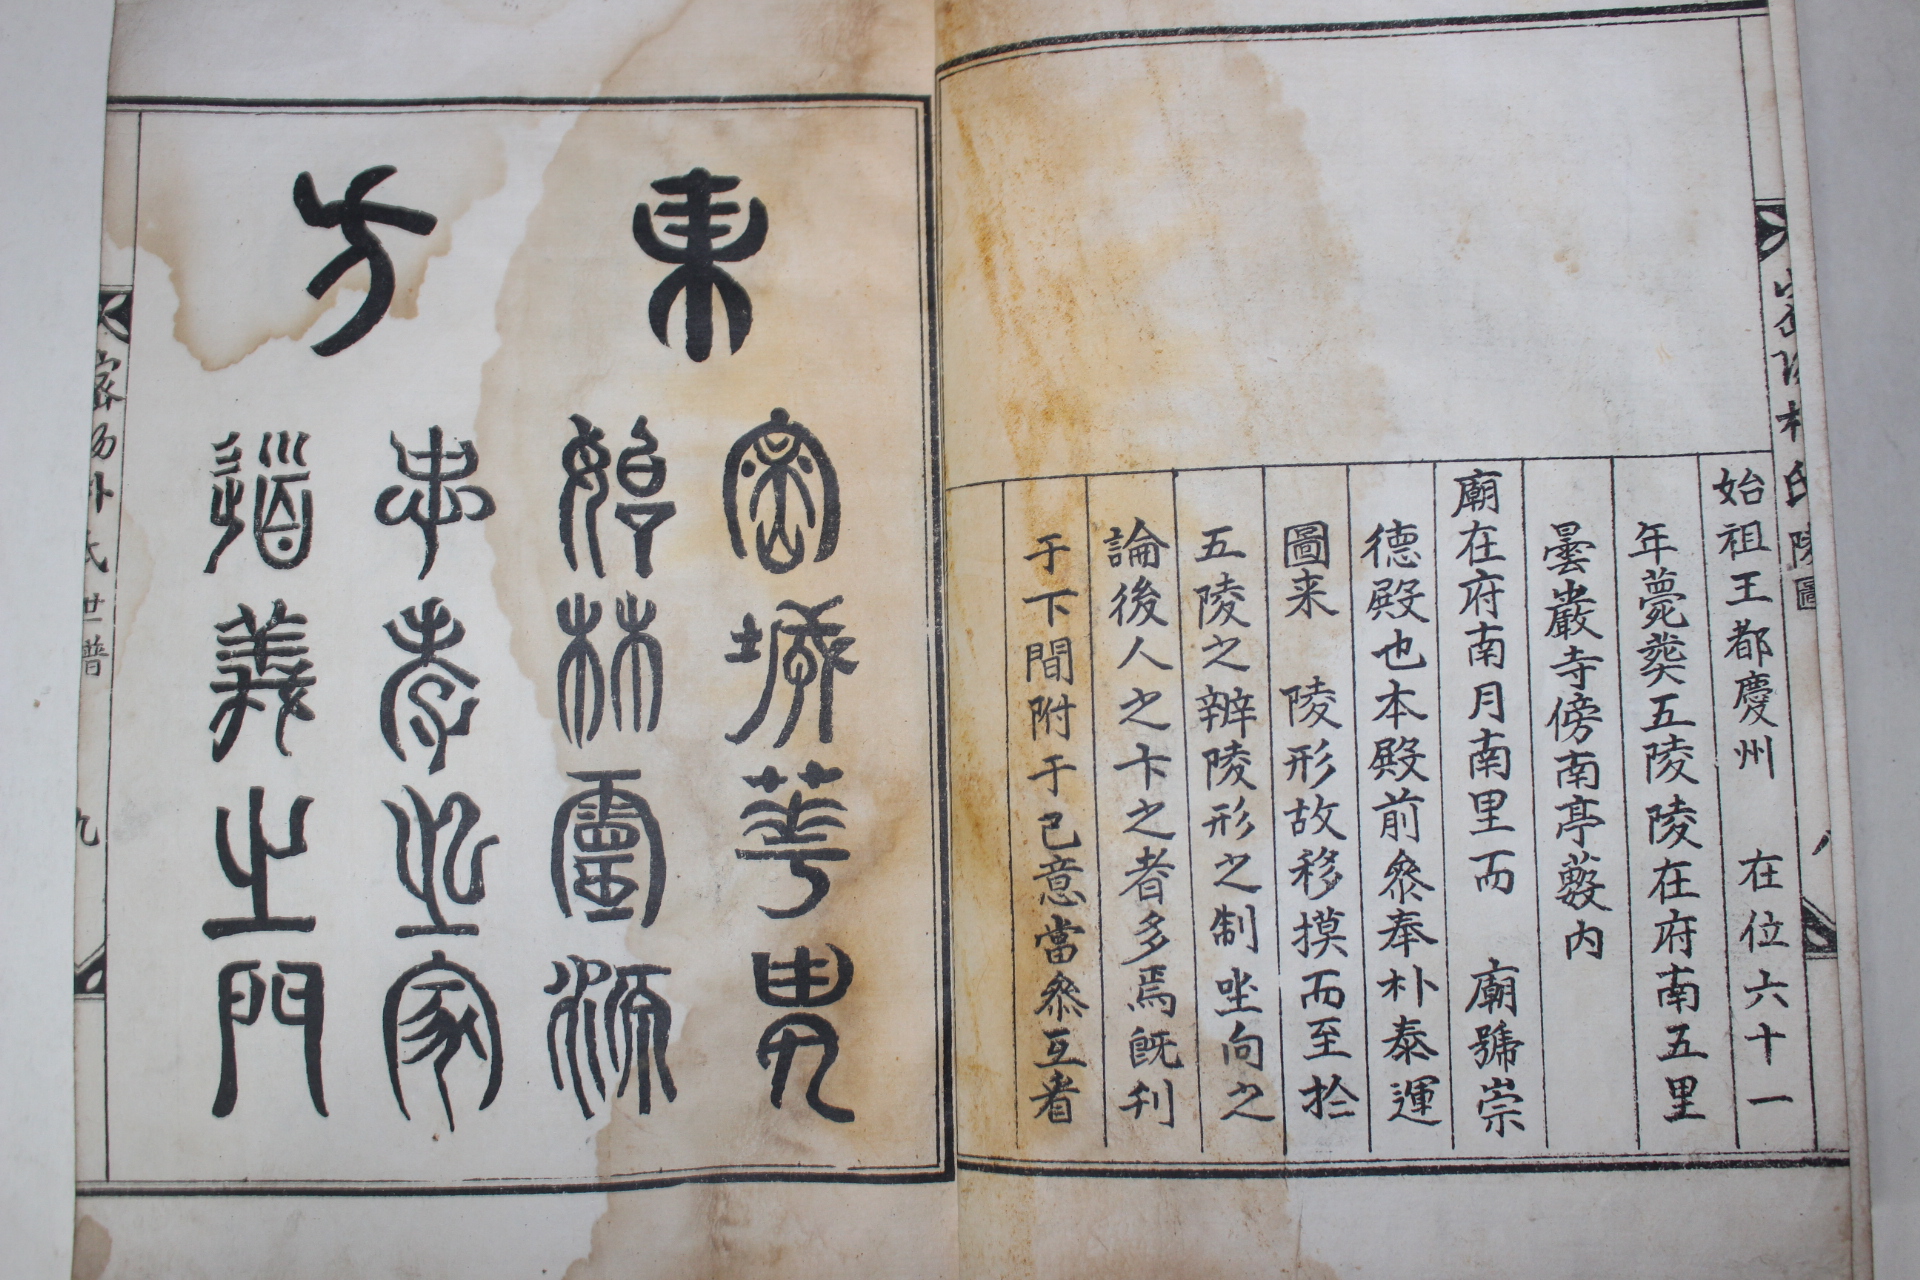 密陽朴氏陵圖
始祖王都慶州 在位六十一
年薨葬五陵陵在府南五里
曇巖寺傍南亭藪内
廟在府南月南里而 廟號崇
德殿也本殿前叅奉朴泰運
圖来 陵形故移摸而至於
五陵之辨陵形之制坐向之
論後人之卞之者多焉旣刋
于下間附于己意當叅互者
東方
密城華冑
始林靈源
忠孝之家
道義之門
密陽朴氏世譜 九